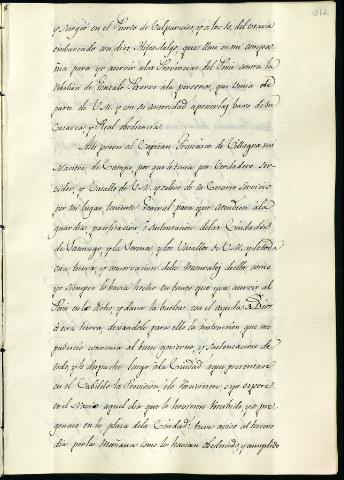 212
y surgió en el Puerto de Valparaiso, y a los 10, del era ya
embarcado con diez Hijosdalgo, que llevé en mi compa-
ñia para yr a servir a las Provincias del Perú contra la
rebelion de Gonzalo Pizarro a la persona, que venia de
parte de V.M. y con su autoridad a ponerlas baxo de su
Cesarea, y Real obediencia.
Alli proveí al Capitan Francisco de Villagra mi
Maestre de Campo, por que le tenia por verdadero ser-
vidor, y Vasallo de V.M. y zeloso de su Cesareo servicio
por mi lugar teniente General para que atendiese a la
guardia, pacificacion, i sustentacion de las Ciudades
de Santiago, y la Serena y los Vasallos de V.M. y de toda
esta tierra, y conservacion de los Naturales de ella, como
yo siempre lo havia hecho en tanto que yva a servir al
Perú en lo dicho, y dava la buelta con el ayuda de Dios
á esta tierra, dexandole para ello la instruccion que me
parecio convenia al buen govierno, y sustentacion de
todo, y le despaché luego a la Ciudad a que presentase
en el Cabildo la Provision, i le recibiesen, e yo esperé
en el Navio aquel dia que le huviesen recebido, y se pre-
gonase en la plaza de la Ciudad: tuve aviso al tercero
dia por la Mañana como lo havian obedecido, y cumplido